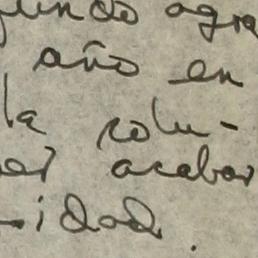 agra
año en
la solu-
acabar
idad.